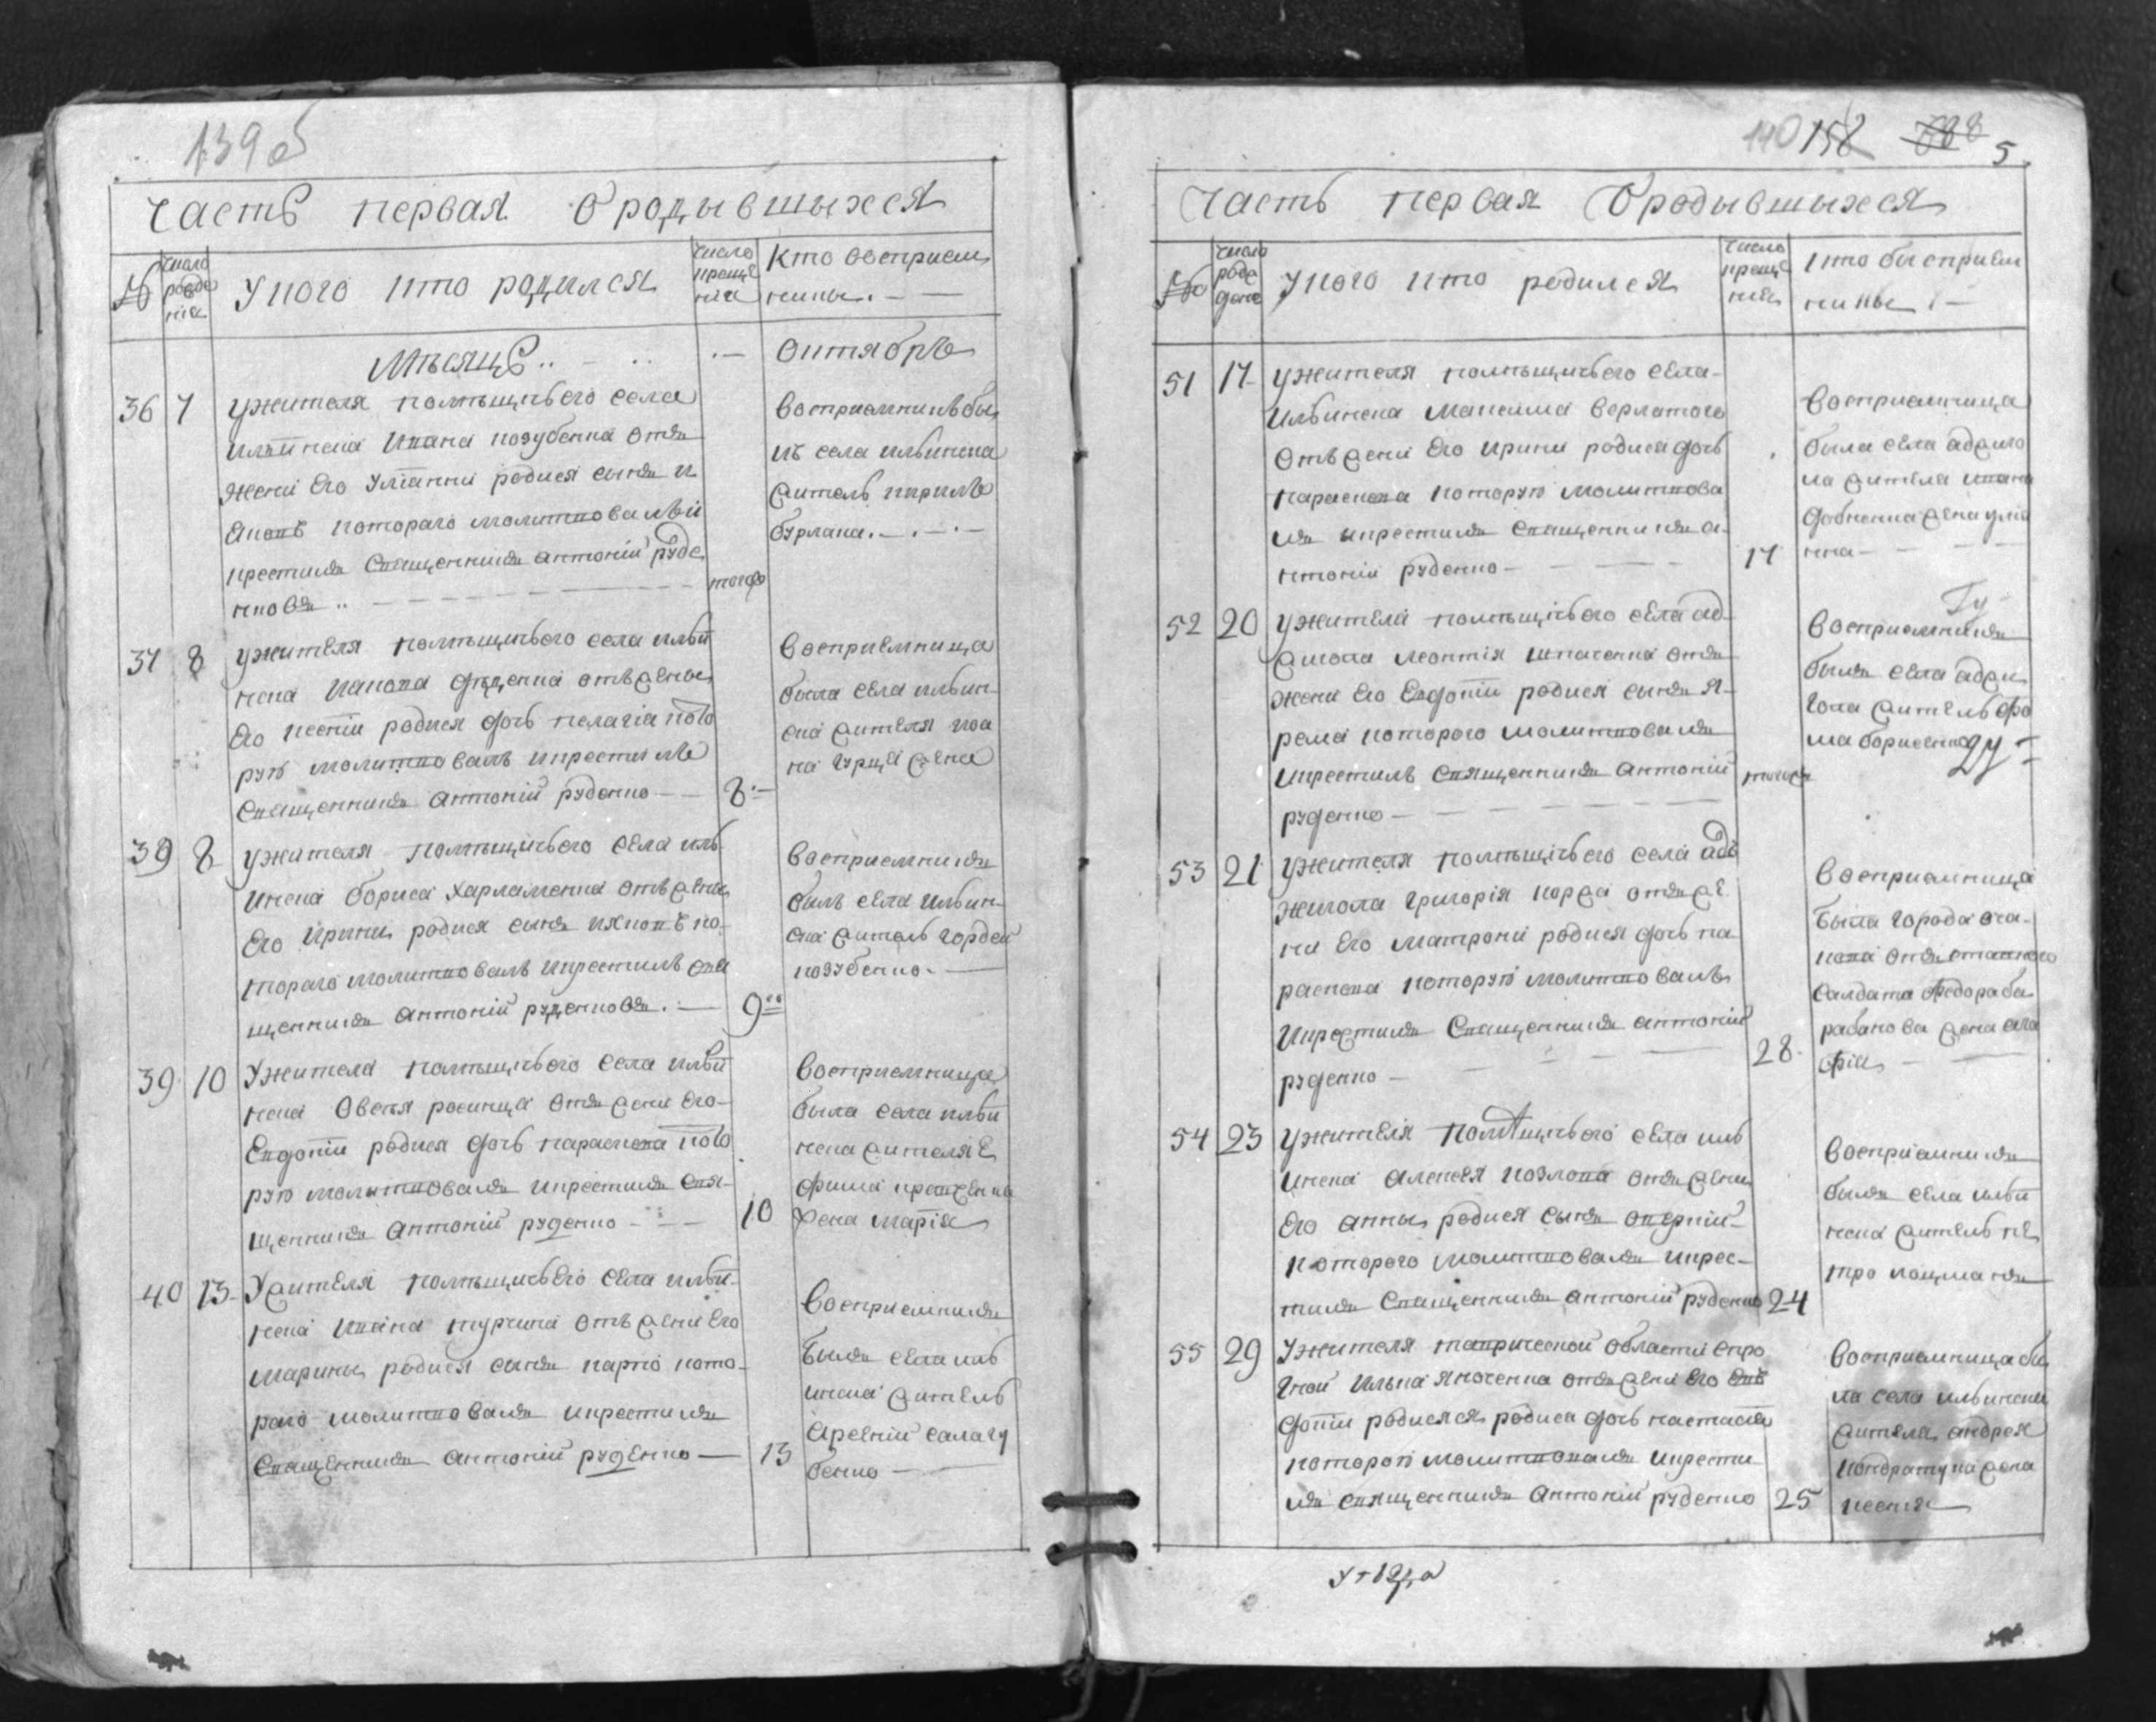 139 об
Часть первая О родывшыхся
№ число рожде нія
У кого кто родился
число креще нія
Кто восприем
никы. —
Мѣсяцъ .. — .. .— Октября
36 7 Ужителя помѣщичьего села
Ильинска Ивана козубенка отъ
жени Его Улianни родися сынъ И
Аковъ которого молитвовалъ и
крестилъ Священникъ Антоній Руде
нковъ ..
тогож
восприемникъ бы
лъ села ильинска
жителъ кирилъ
бурлака. — . — . —
37 8 Ужителя помѣщичьего села ильи
нска Иакова отъ жены
Его ксеніи родися дочь пелагіа кото
рую молитвовалъ икрестилъ
Священникъ Антоній руденко — — 8 . —
восприемница
была села ильин
ска жителя
жена
39 8 Ужителя помѣщичьего села иль
инска бориса харламенка отъ жены
Его Ирины родися сынъ ияковъ ко
торого молитвовалъ икрестилъ свя
щенникъ Антоній руденковъ . — 9
восприемникъ
былъ села ильин
ска житель гордей
козубенко . —
39 10 Ужителя помѣщичьего села ильи
нска Овсея росинца отъ жени Его
Евдокіи родися дочь параскева кото
рую молитвовалъ икрестилъ свя
щенникъ Антоній руденко — — 10
восприемница
была села ильи
нска жителя Е
фима
жена марія
40 13 Ужителя помѣщичьЕго села ильи
нска Ивана турчина отъ жени Его
марины родися сынъ карпо кото
рого молитвовалъ икрестилъ
Священникъ Антоній руденко — 13
Восприемникъ
былъ села иль
инска жителъ
Арсеній салагу
бенко —
140 158 5
Часть первая О родывшыхся
№ число рожд
Укого кто родился
число креще нія
кто восприем
никы . —
51 17 Ужителя помѣщичьего села
Ильинска Максима верлатого
отъ жени Его Ирини родися дочь
параскева которую молитвова
лъ икрестилъ Священникъ а
нтоній руденко — 17
Восприемница
была села аджиго
ла жителя ивана
жена улiа
нна —
52 20 Ужителя помѣщичьего села ад
жигола леонтія шпаченка отъ
жени Его Евдокіи родися сынъ Я
рема которого молитвовалъ
икрестилъ Священникъ Антоній
руденко —
тогож
Восприемникъ
былъ села аджи
гола жителъ фо
ма
53 21 Ужителя помѣщичьего села ад
жигола григорія коржа отъ же
ни Его матрони родися дочь па
раскева которую молитвовалъ
Икрестилъ Священникъ антоній
руденко — 28
Восприемница
была города оча
кова отъ
салдата федора ба
рабанова жена
54 23 Ужителя помѣщичьего села иль
инска Алексея козлова отъ жены
Его анны родися сынъ
которого молитвовалъ икрес
тилъ Священникъ Антоній руденко 24
Восприемникъ
былъ села ильи
нска жителъ пе
тро лоцманъ
55 29 Ужителя таврической области
Илька Яноченка отъ жени его Ев
докіи родисяся родися дочь настасія
которою молитвовалъ икрести
лъ священникъ Антоній руденко 25
Восприемница бы
ла села ильинска
жителя андрея
кондратука жена
ксенія